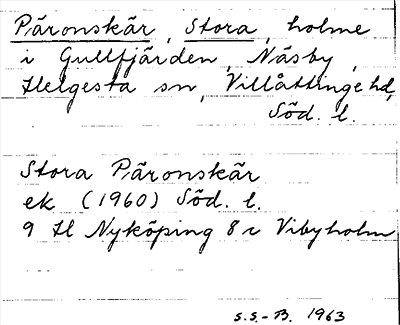 Päronskär, Stora, holme
i Gullfjärden, Näsby,
Helgesta sn, Villåttinge hd,
Söd. l.
Stora Päronskär
ek (1960) Söd. l.
9 H Nyköping 8 c Vibyholm
S.S.-B. 1963